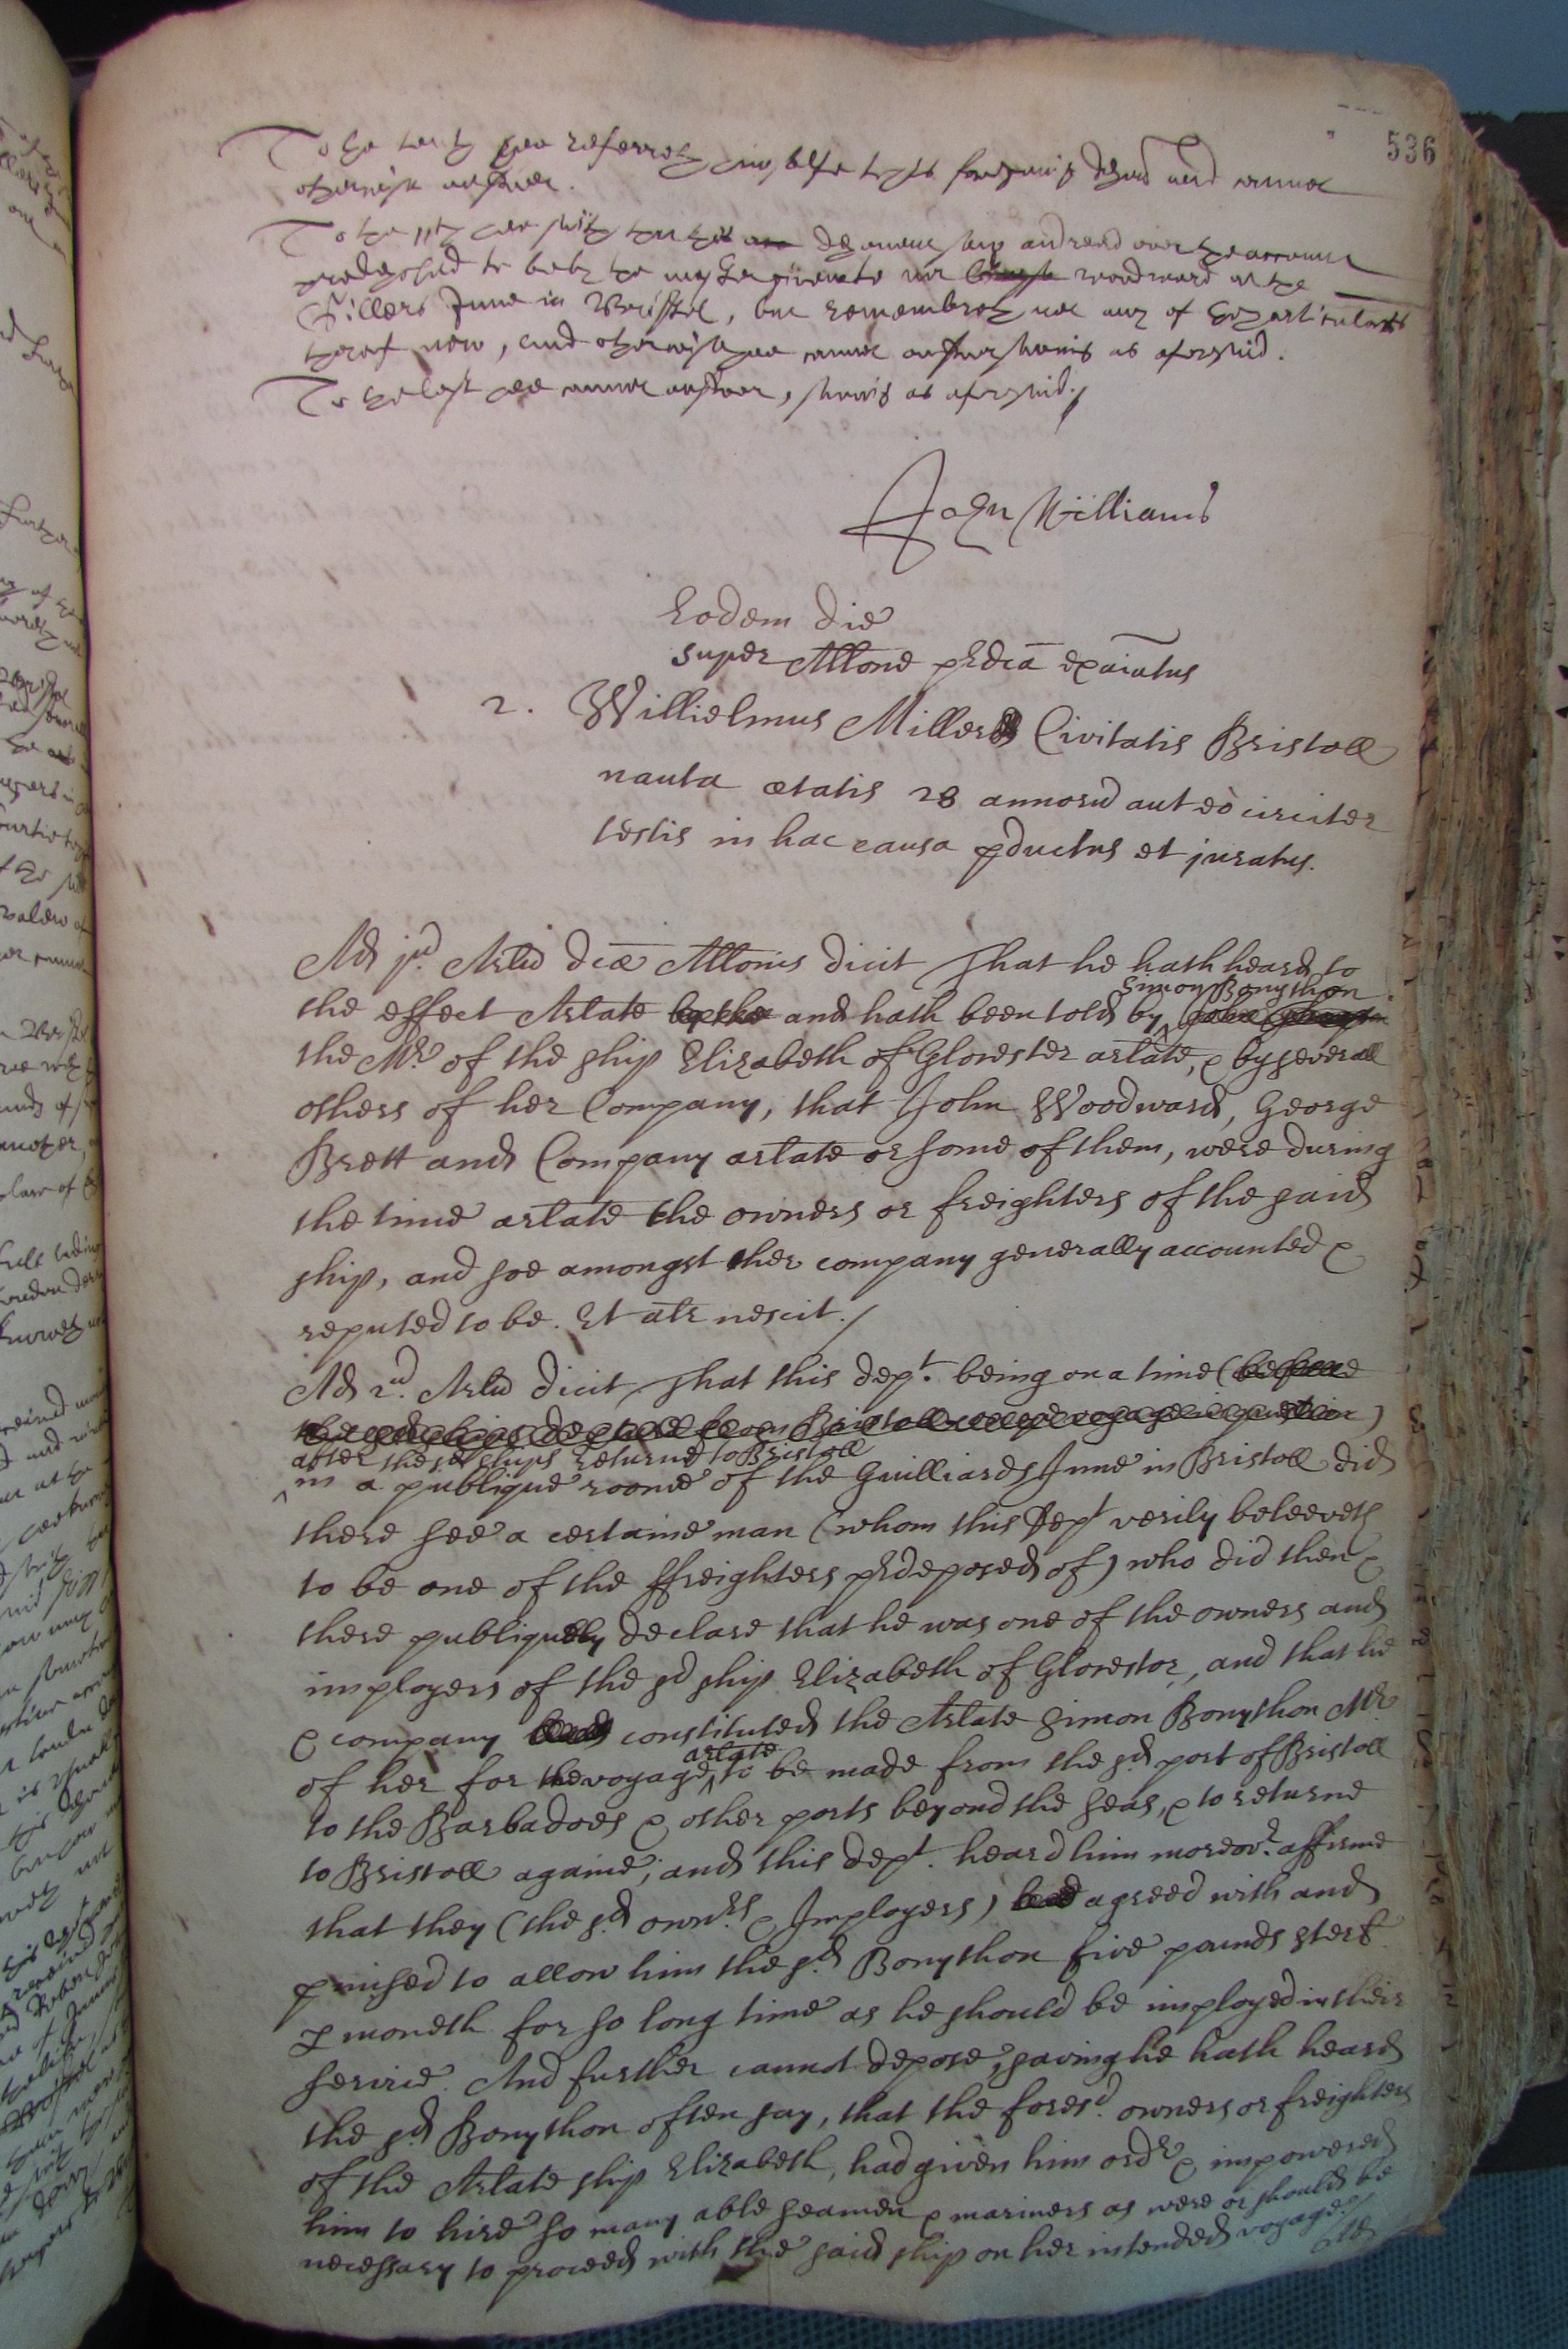 536
To the tenth hee referreth him selfe to his foregoing deposition and cannot
otherwise answer.
To the 11th hee saith that hee did see and read over the accompt
predeposed to bee by the master given to mr Woodward at the
Gillers Inne in Bristol, but remembreth not any of the particulars
thereof now, and otherwise hee cannot answer saving as aforesaid.
To the last hee cannot answer, saving as aforesaid./
John Williams
Eodem die
super Allone prdca exaiatus
2. Willielmus Miller Civitatis Bristoll
nauta ætatis 28 annoru aut eo circiter
testis in hac causa pductus et juratus.
Ad jud Arlu dcæ Allonis dicit That he hath heard to
the effect Arlate and hath been told by Simon Bonython
the Mr of the ship Elizabeth of Glocester arlate, & by severall
others of her Company, that John Woodward, George
Brett and Company arlate or some of them, were during
the time arlate the owners or freighters of the said
ship, and soe amongst her company generally accounted &
reputed to be. Et alr nescit./
Ad 2ud Arlu dicit, That this dept. being on a time (before
the sd ships departure from Bristoll on the voyage in question)
after the sd ships returne to Bristoll
in a publique roome of the Guilliards Inne in Bristoll did
there see a certaine man (whom this dept verily beleeveth
to be one of the ffreighters prdeposed of) who did then &
there publiquely declare that he was one of the owners and
imployers of the sd ship Elizabeth of Glocestor, and that he
& company constituted the Arlate Simon Bonython Mr
of her for the voyage arlate to be made from the sd port of Bristoll
to the Barbadoes & other ports beyond the seas, & to returne
to Bristoll againe; and this dept. heard him moreovr. affirme
that they (the sd ownrs & Imployers) agreed with and
pmised to allow him the sd Bonython five pounds sterl
p moneth for so long time as he should be imployed in their
service. And further cannot depose, saving he hath heard
the sd Bonython often say, that the foresd. owners or freighters
of the Arlate ship Elizabeth, had given him ordr & impowered
him to hire so many able seamen & mariners as were or should be
necessary to proceed with the said ship on her intended voyage./